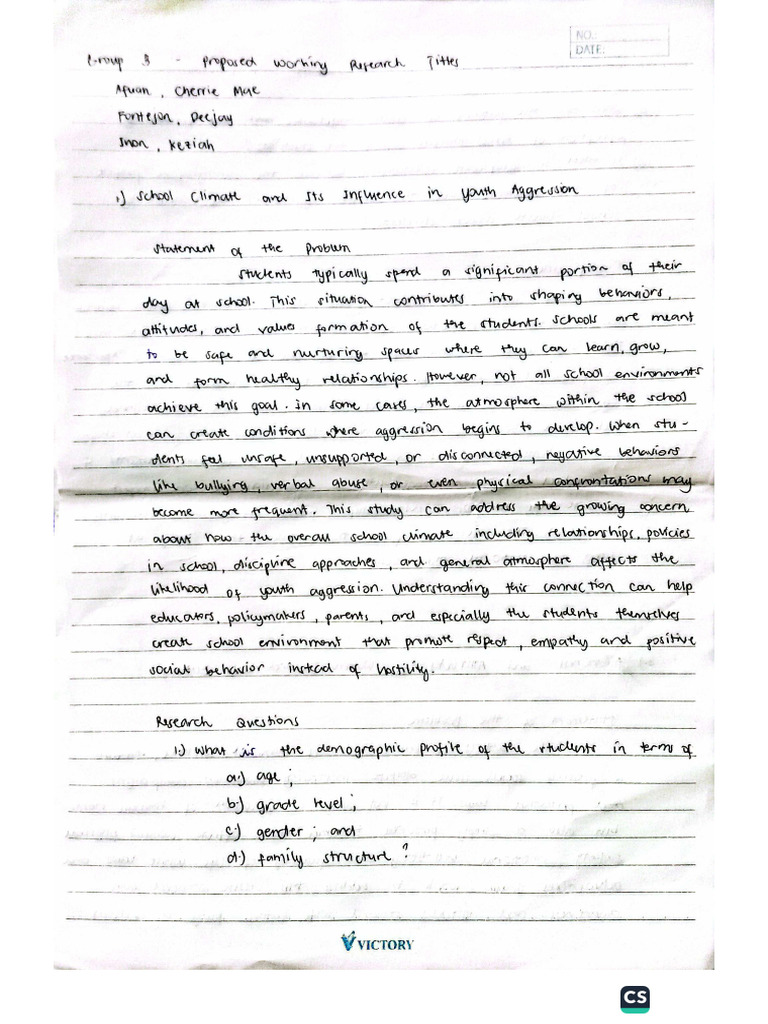 NO.:
DATE:
Group 3 - Proposed Working Research Titles
Afuan, Cherrie Mae
Fontejon, Deejay
Inon, Keziah
1.) School Climate and Its Influence in Youth Aggression
Statement of the Problem
Students typically spend a significant portion of their
day at school. This situation contributes into shaping behaviors,
attitudes, and values formation of the students. Schools are meant
to be safe and nurturing spaces where they can learn, grow,
and form healthy relationships. However, not all school environments
achieve this goal. In some cases, the atmosphere within the school
can create conditions where aggression begins to develop. When stu-
dents feel unsafe, unsupported, or disconnected, negative behaviors
like bullying, verbal abuse, or even physical confrontations may
become more frequent. This study can address the growing concern
about how the overall school climate including relationships, policies
in school, discipline approaches, and general atmosphere affects the
likelihood of youth aggression. Understanding this connection can help
educators, policymakers, parents, and especially the students themselves
create school environment that promote respect, empathy and positive
social behavior instead of hostility.
Research Questions
1.) What is the demographic profile of the students in terms of
a.) age;
b.) grade level;
c.) gender; and
d.) family structure?
VICTORY
CS